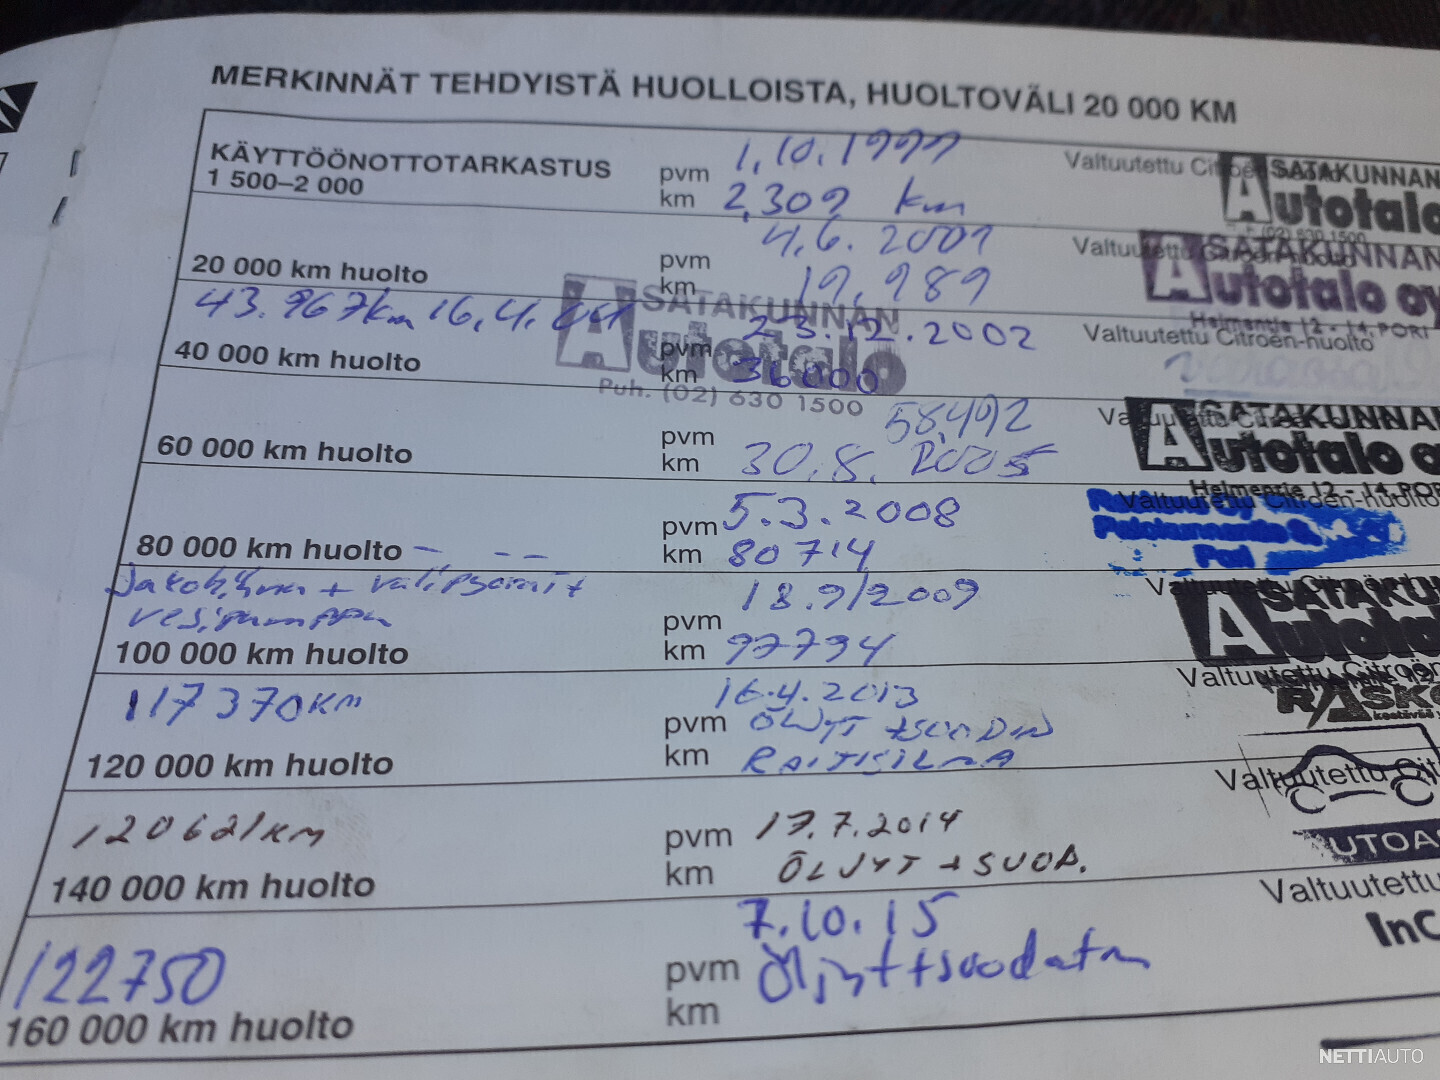 MERKINNÄT TEHDYISTÄ HUOLLOISTA, HUOLTOVÄLI 20 000 KM
KÄYTTÖÖNOTTOTARKASTUS
1 500–2 000
pvm 1.10.1999
km 2,309 km
Valtuutettu Citroën
SATAKUNNAN
Autotalo
(02) 630 1500
20 000 km huolto
pvm 4.6.2001
km 19,989
Valtuutettu Citroën-huolto
SATAKUNNAN
Autotalo oy
Helmentie 12 - 14 PORI
43.967km 16.4.
SATAKUNNAN
Autotalo
Puh. (02) 630 1500
40 000 km huolto
pvm 23.12.2002
km 36000
Valtuutettu Citroën-huolto
60 000 km huolto
58,492
pvm
km 30.8.2005
SATAKUNNAN
Autotalo
Helmentie 12 - 14 PORI
80 000 km huolto
pvm 5.3.2008
km 80714
Valtuutettu Citroën-huolto
vesipumppu
100 000 km huolto
18.9/2009
pvm
km 97794
SATAKU
Autotalo
117370KM
120 000 km huolto
16.4.2013
pvm ÖLJYT +SUODIN
km RAITISILMA
Valtuutettu Citroën
RASKO
120621KM
140 000 km huolto
pvm 17.7.2014
km ÖLJYT +SUOD.
Valtuutettu Cit
UTOA
122750
160 000 km huolto
7.10.15
pvm Öljyt+suodatin
km
Valtuutettu
InC
NETTIAUTO